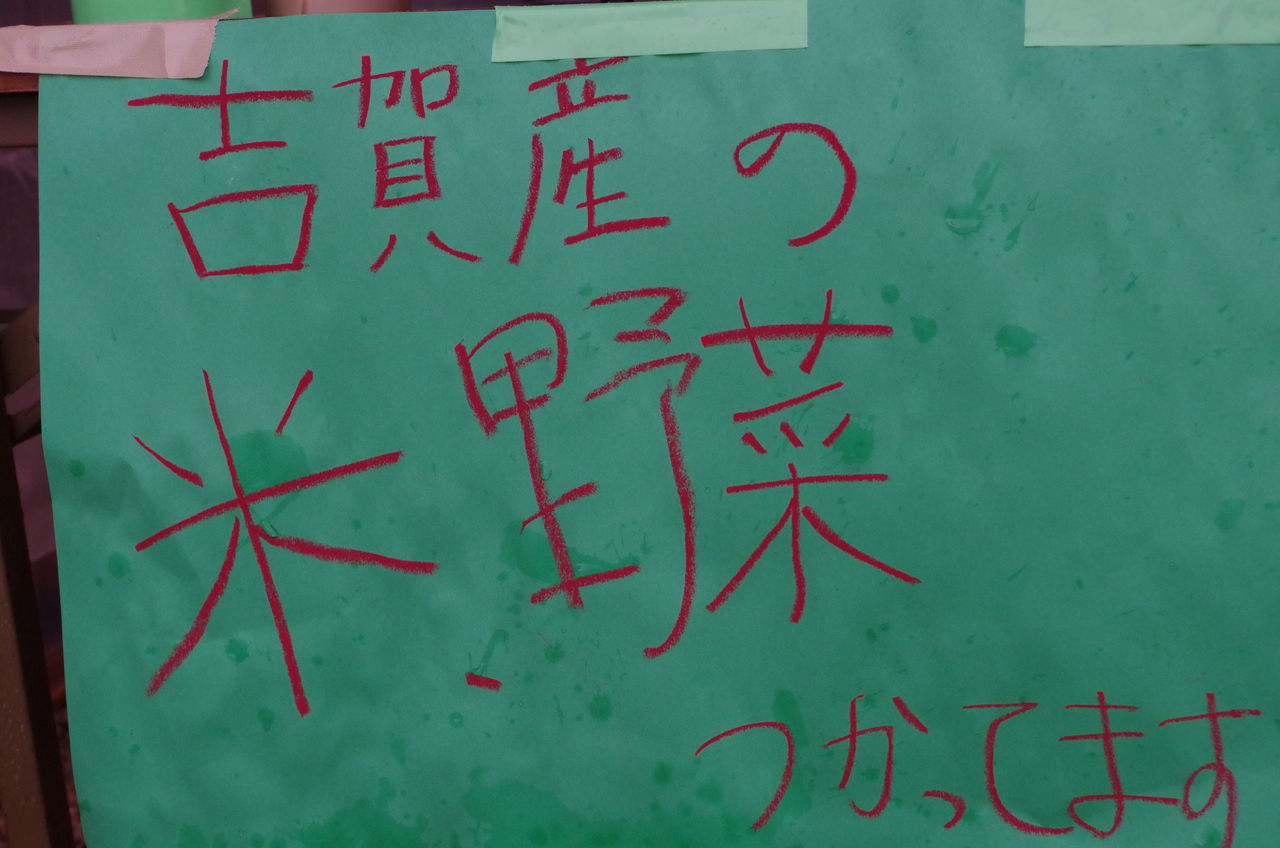 吉賀産の
米、野菜
つかってます